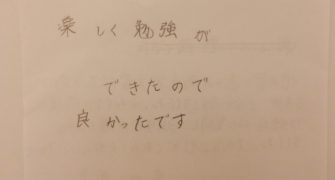 楽しく勉強が
できたので
良かったです